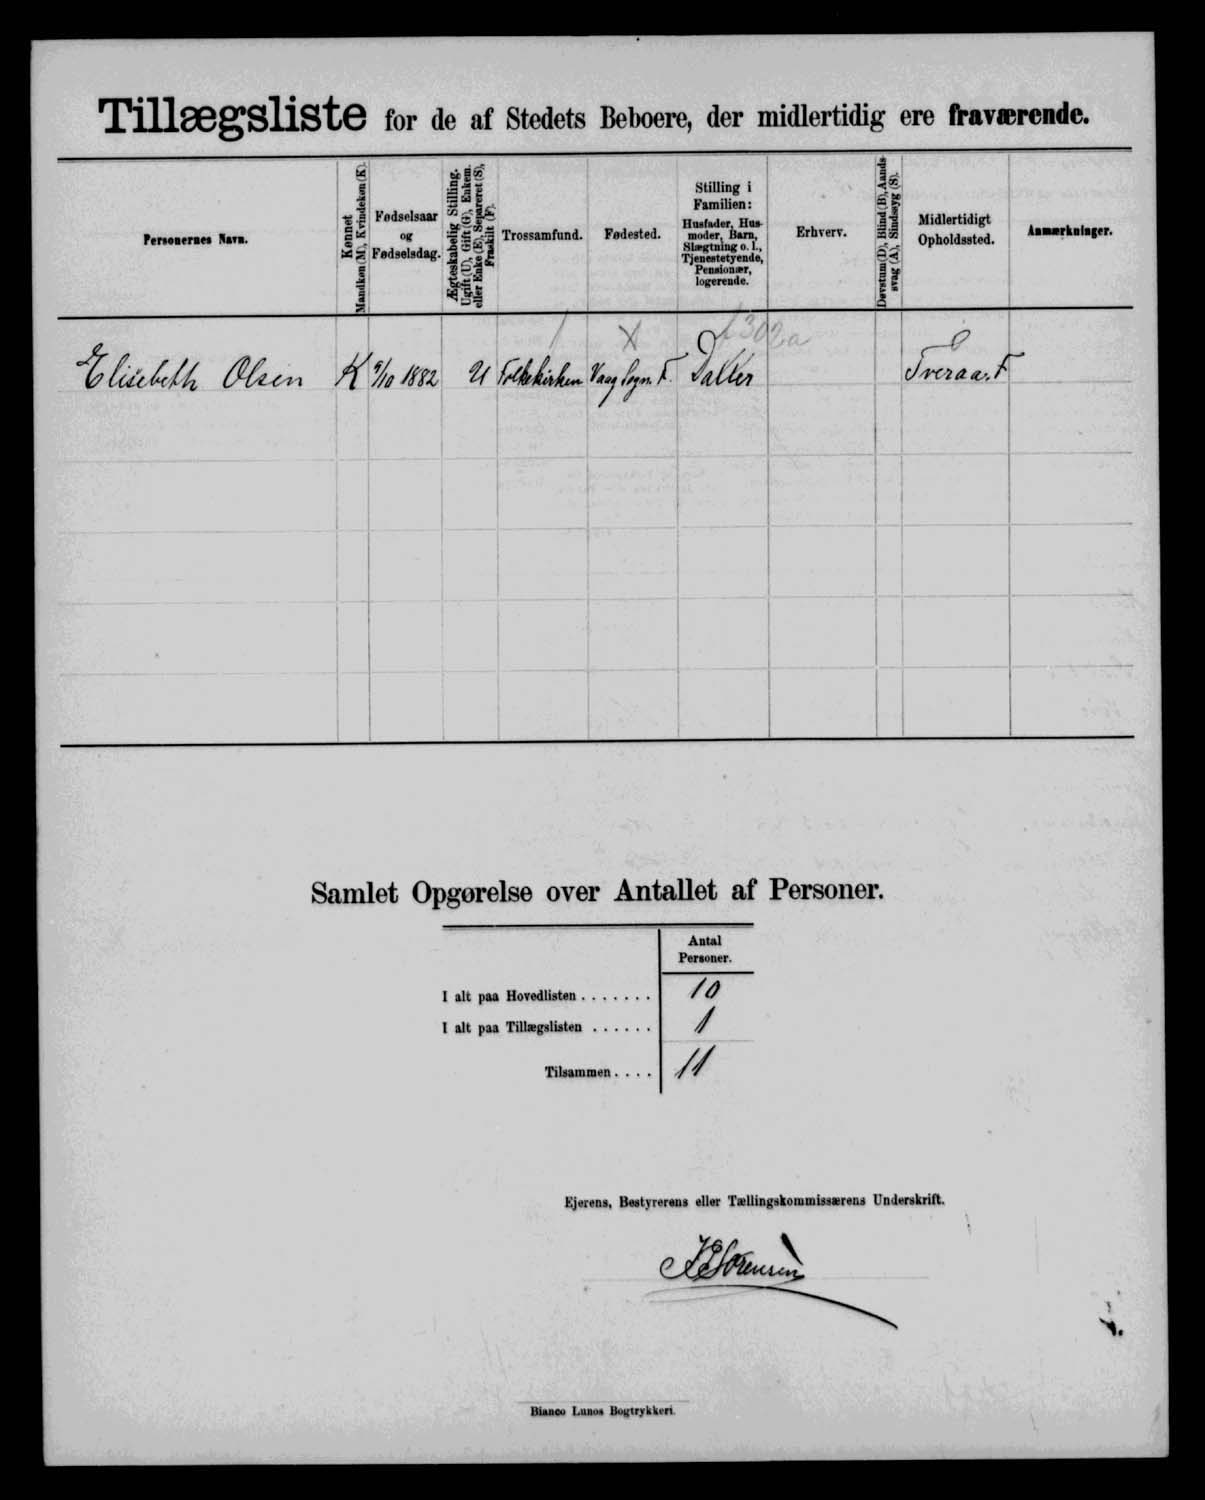 Tillægsliste for de af Stedets Beboere, der midlertidig ere fraværende.
Personernes Navn.
Kønnet
Mandkøn (M), Kvindekøn (K).
Fødselsaar
og
Fødselsdag.
Ægteskabelig Stilling.
Ugift (U), Gift (G), Enkem.
eller Enke (E), Separeret (S),
Fraskilt (F).
Trossamfund.
Fødested.
Stilling i
Familien:
Husfader, Hus-
moder, Barn,
Slægtning o. l.,
Tjenestetyende,
Pensionær,
logerende.
Erhverv.
Døvstum (D), Blind (B), Aands-
svag (A), Sindssyg (S).
Midlertidigt
Opholdssted.
Anmærkninger.
Elisebeth Olsen K 9/10 1882 U Folkekirken Vaag Sogn. F. Datter Tveraa. F
Samlet Opgørelse over Antallet af Personer.
Antal
Personer.
I alt paa Hovedlisten . . . . . . . 10
I alt paa Tillægslisten . . . . . . 1
Tilsammen . . . . 11
Ejerens, Bestyrerens eller Tællingskommissærens Underskrift.
Sørensen
Bianco Lunos Bogtrykkeri.